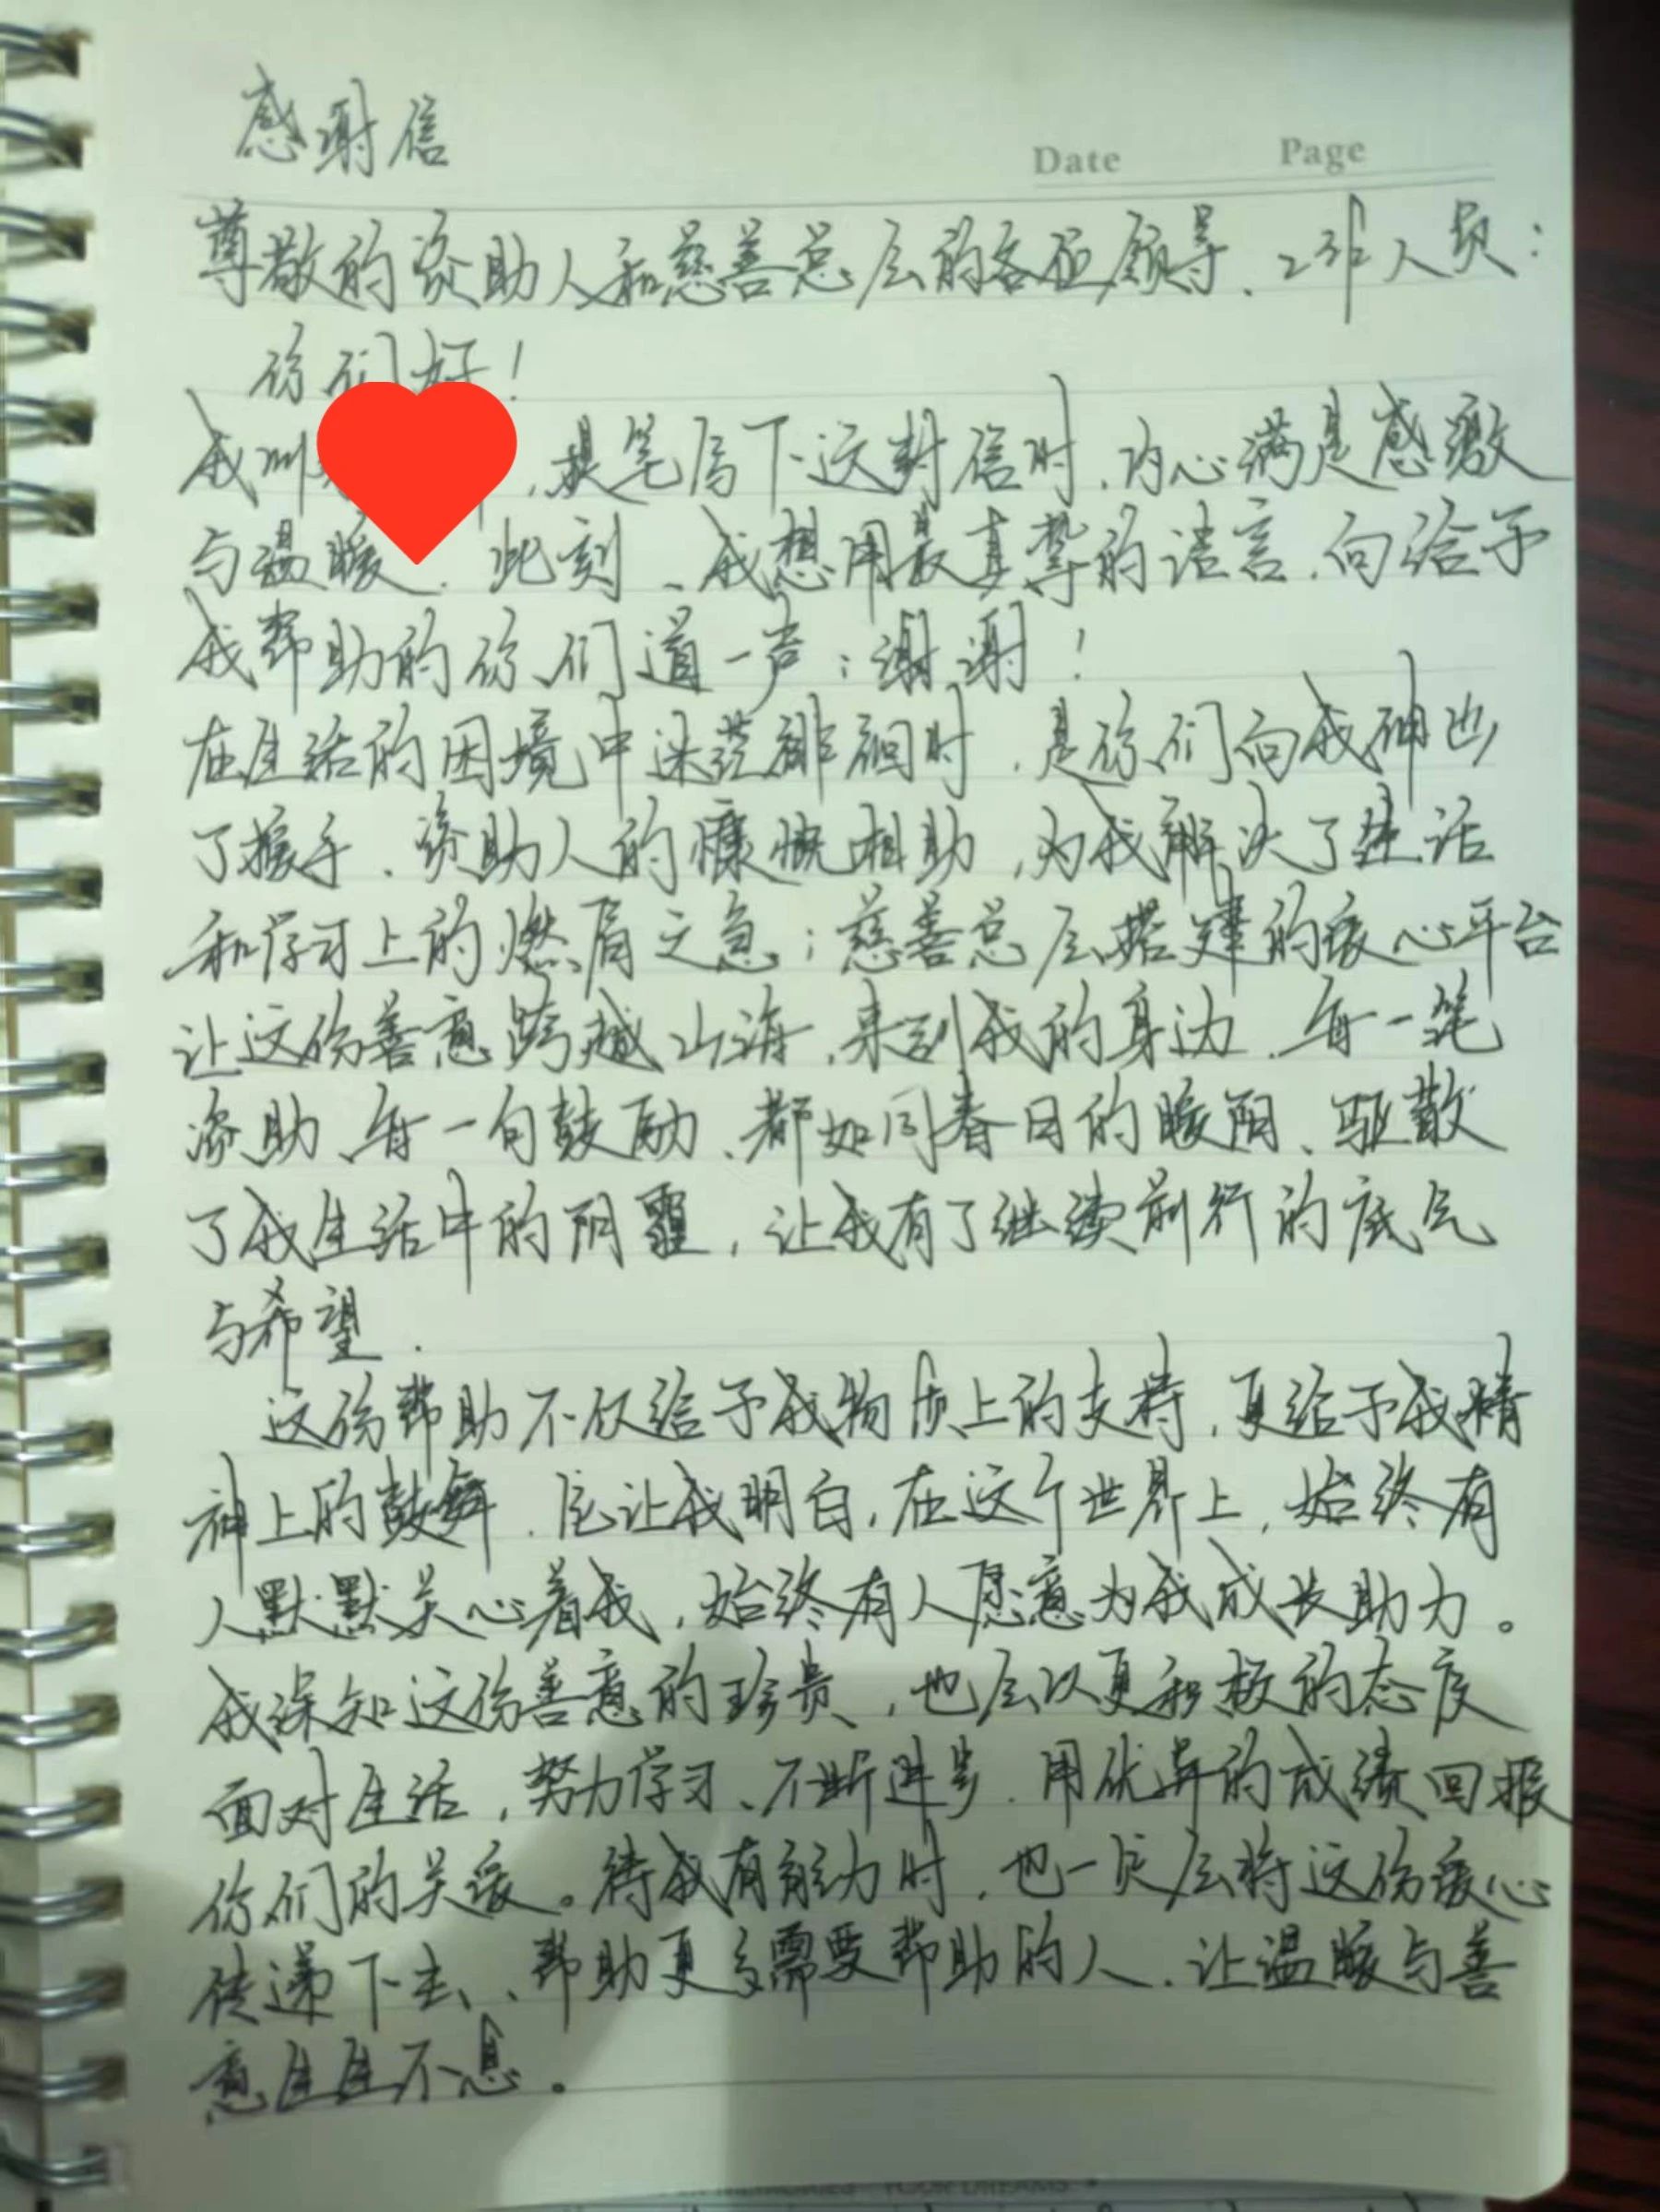 感谢信
Date Page
尊敬的资助人和慈善总会的各位领导、工作人员：
你们好！
我叫 ，提笔写下这封信时，内心满是感激
与温暖。此刻、我想用最真挚的语言，向给予
我帮助的你们道一声：谢谢！
在生活的困境中迷茫徘徊时，是你们向我伸出
了援手，资助人的慷慨相助，为我解决了生活
和学习上的燃眉之急；慈善总会搭建的爱心平台
让这份善意跨越山海，来到我的身边，每一笔
资助、每一句鼓励、都如同春日的暖阳、驱散
了我生活中的阴霾，让我有了继续前行的底气
与希望.
这份帮助不仅给予我物质上的支持，更给予我精
神上的鼓舞，它让我明白，在这个世界上，始终有
人默默关心着我，始终有人愿意为我成长助力。
我深知这份善意的珍贵，也会以更积极的态度
面对生活，努力学习、不断进步，用优异的成绩回报
你们的关爱。待我有能力时，也一定会将这份爱心
传递下去、帮助更多需要帮助的人，让温暖与善
意生生不息。